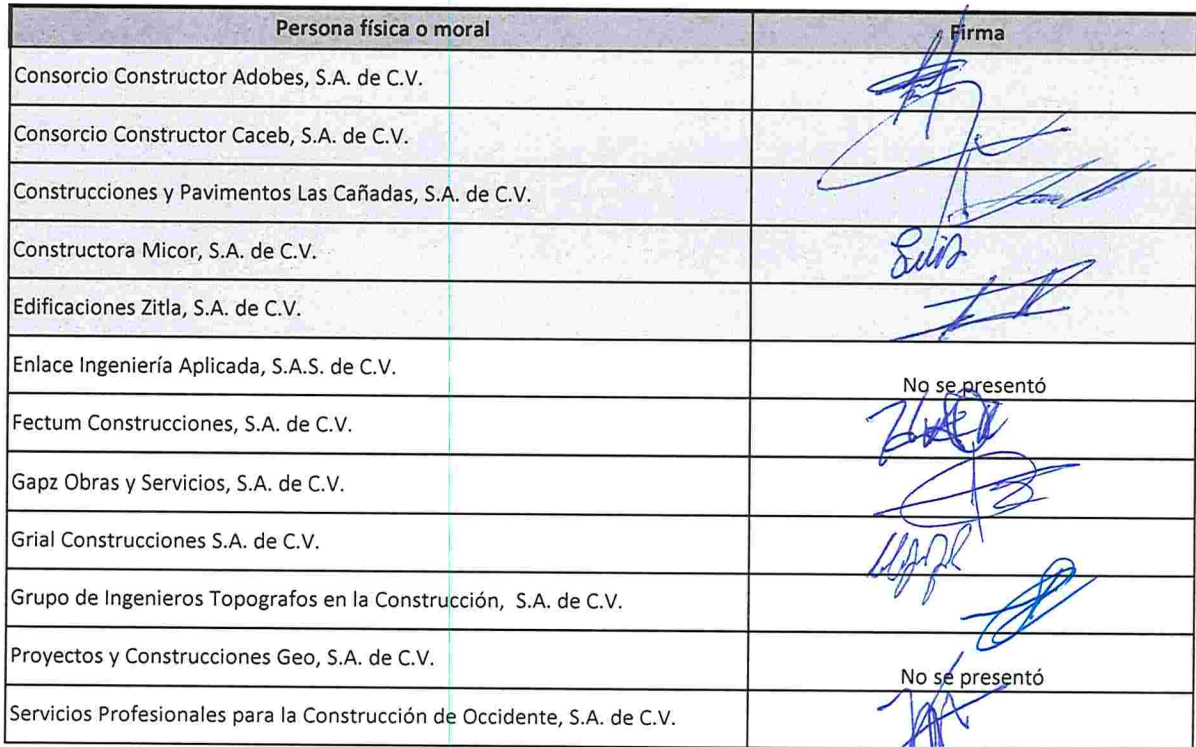 Persona física o moral Firma
Consorcio Constructor Adobes, S.A. de C.V.
Consorcio Constructor Caceb, S.A. de C.V.
Construcciones y Pavimentos Las Cañadas, S.A. de C.V.
Constructora Micor, S.A. de C.V. Luis
Edificaciones Zitla, S.A. de C.V.
Enlace Ingeniería Aplicada, S.A.S. de C.V. No se presentó
Fectum Construcciones, S.A. de C.V.
Gapz Obras y Servicios, S.A. de C.V.
Grial Construcciones S.A. de C.V.
Grupo de Ingenieros Topografos en la Construcción, S.A. de C.V.
Proyectos y Construcciones Geo, S.A. de C.V. No se presentó
Servicios Profesionales para la Construcción de Occidente, S.A. de C.V.